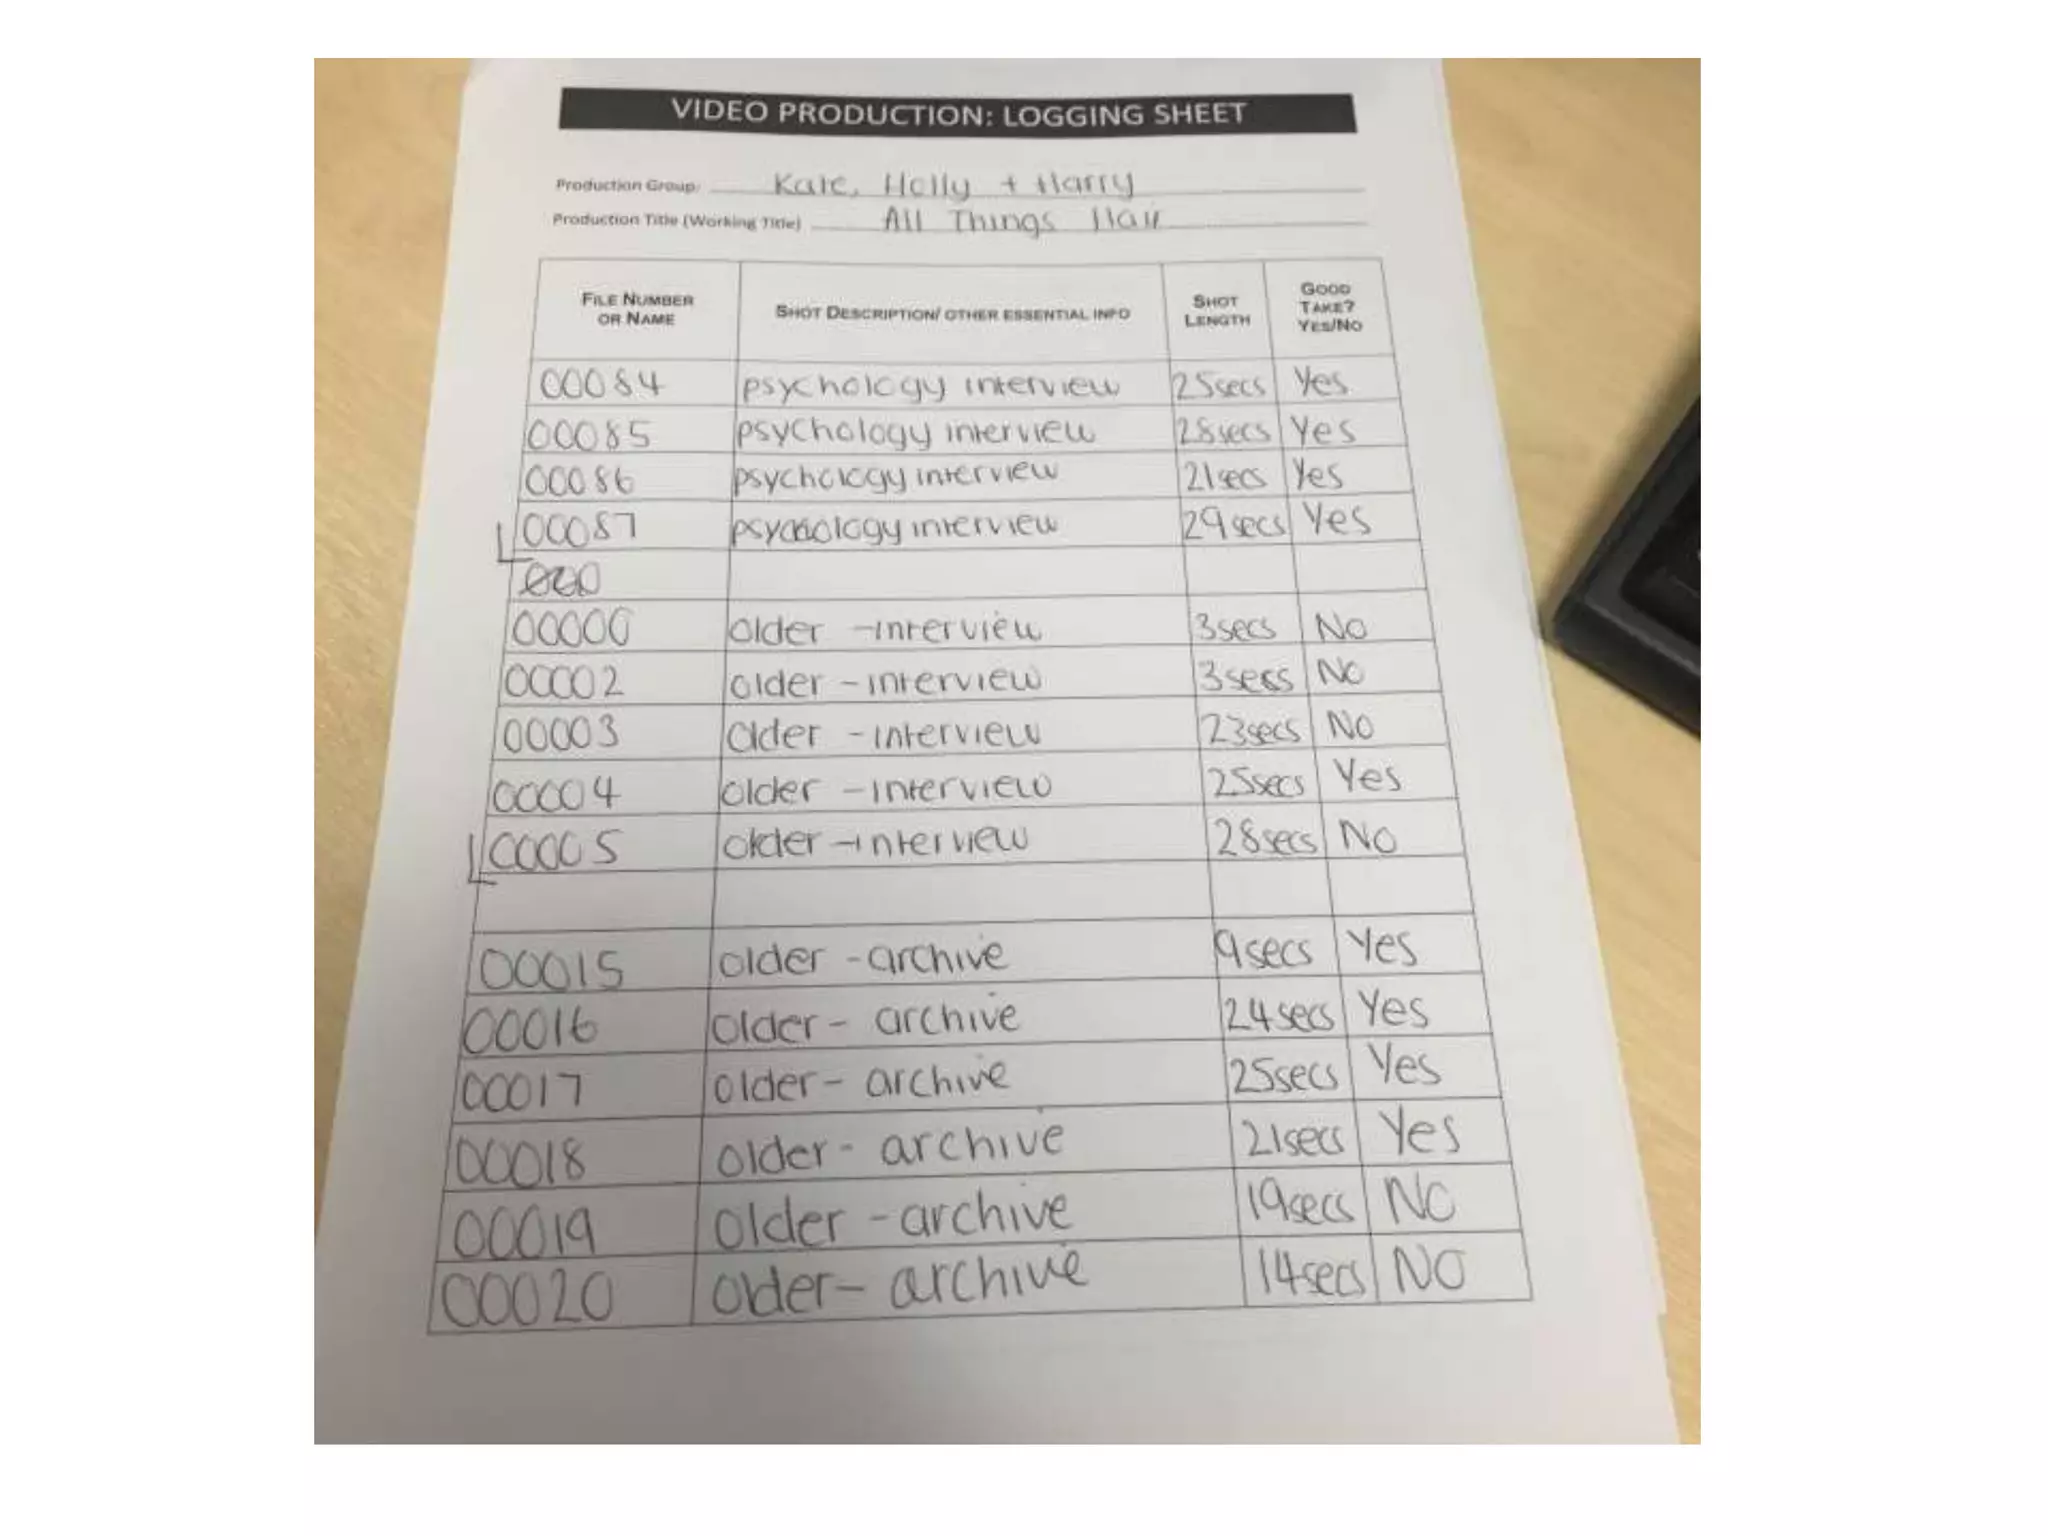 VIDEO PRODUCTION: LOGGING SHEET
Production Group: Kate, Holly + Harry
Production Title (Working Title) All Things Hair
FILE NUMBER OR NAME SHOT DESCRIPTION/ OTHER ESSENTIAL INFO SHOT LENGTH GOOD TAKE? YES/NO
00084 psychology interview 25secs Yes
00085 psychology interview 28secs Yes
00086 psychology interview 21secs Yes
00087 psychology interview 29secs Yes
00000 older - interview 3secs No
00002 older - interview 3secs No
00003 older - interview 23secs No
00004 older - interview 25secs Yes
00005 older - interview 28secs No
00015 older - archive 9secs Yes
00016 older - archive 24secs Yes
00017 older - archive 25secs Yes
00018 older - archive 21secs Yes
00019 older - archive 19secs NO
00020 older - archive 14secs NO